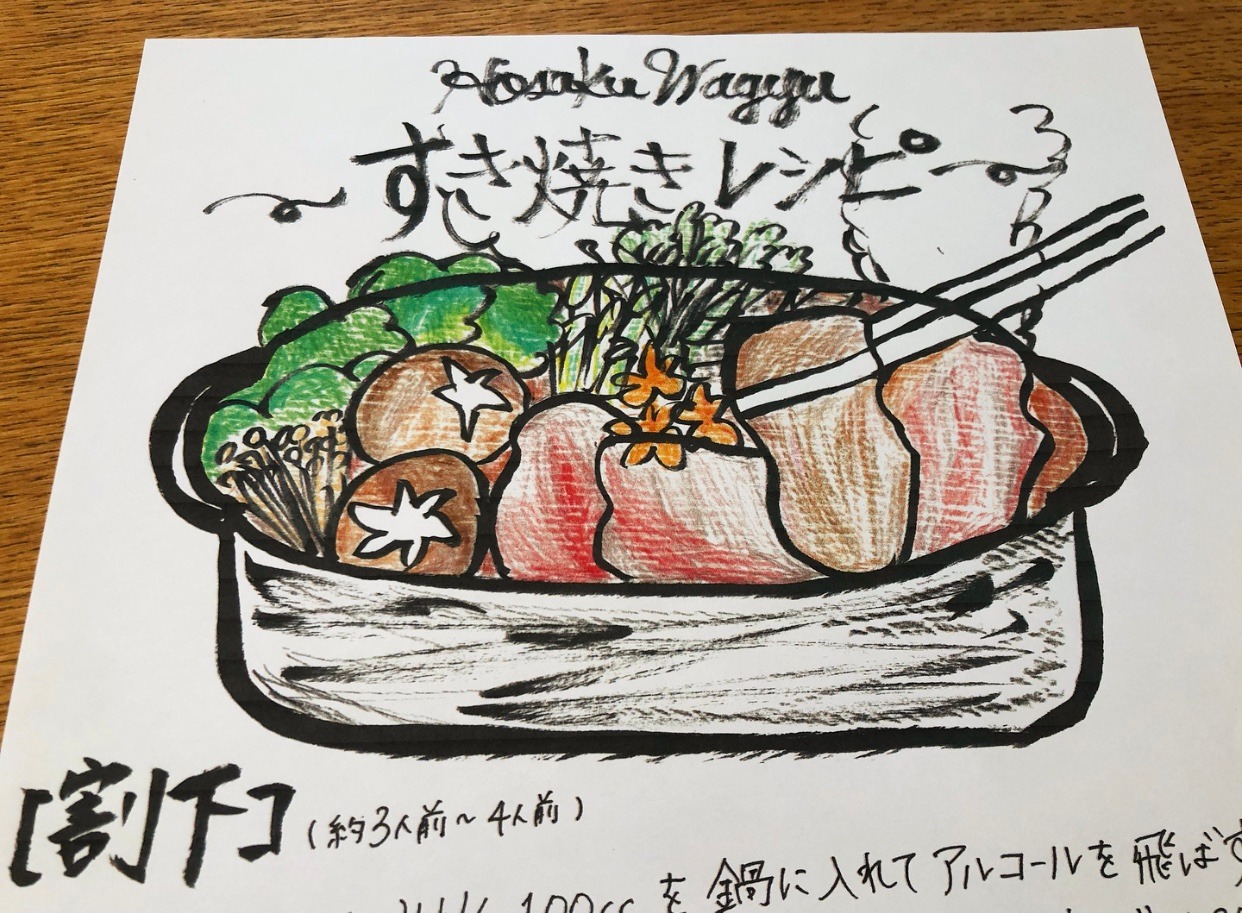 Hosaku Wagyu
すき焼きレシピ
[割下] (約3人前～4人前)
100cc を 鍋に入れて アルコールを 飛ばす